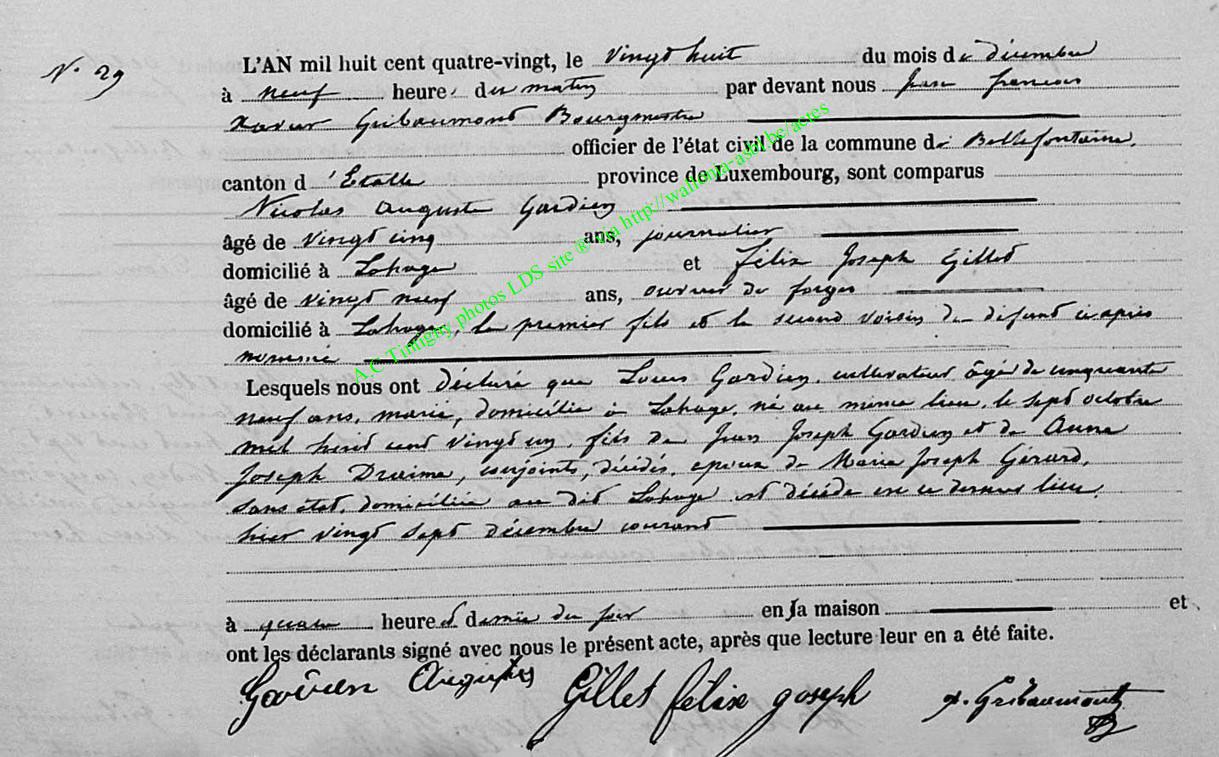 N° 29
L'AN mil huit cent quatre-vingt, le vingt huit du mois de décembre
à neuf heures du matin par devant nous Jean françois
Xavier Gribaumont Bourgmestre
officier de l'état civil de la commune de Bellefontaine,
canton d'Etalle province de Luxembourg, sont comparus
Nicolas Auguste Gardien
âgé de vingt cinq ans, journalier
domicilié à Lahage et Félix Joseph Gillet
âgé de vingt neuf ans, ouvrier de forges
domicilié à Lahage, le premier fils et le second voisin du défunt ci après
nommé
Lesquels nous ont déclaré que Louis Gardien, cultivateur âgé de cinquante
neuf ans, marié, domicilié à Lahage, né au même lieu, le sept octobre
mil huit cent vingt un, fils de Jean Joseph Gardien et de Anne
Joseph Draime, conjoints, décédés, époux de Marie Joseph Gérard,
sans état, domiciliée au dit Lahage est décédé en ce dernier lieu,
hier vingt sept décembre courant
à quatre heures et demie du soir en sa maison et
ont les déclarants signé avec nous le présent acte, après que lecture leur en a été faite.
Gardien Auguste Gillet félix joseph X. Gribaumont
A.C Tintigny photos LDS site ® via http://wallonia-asbl.be/actes